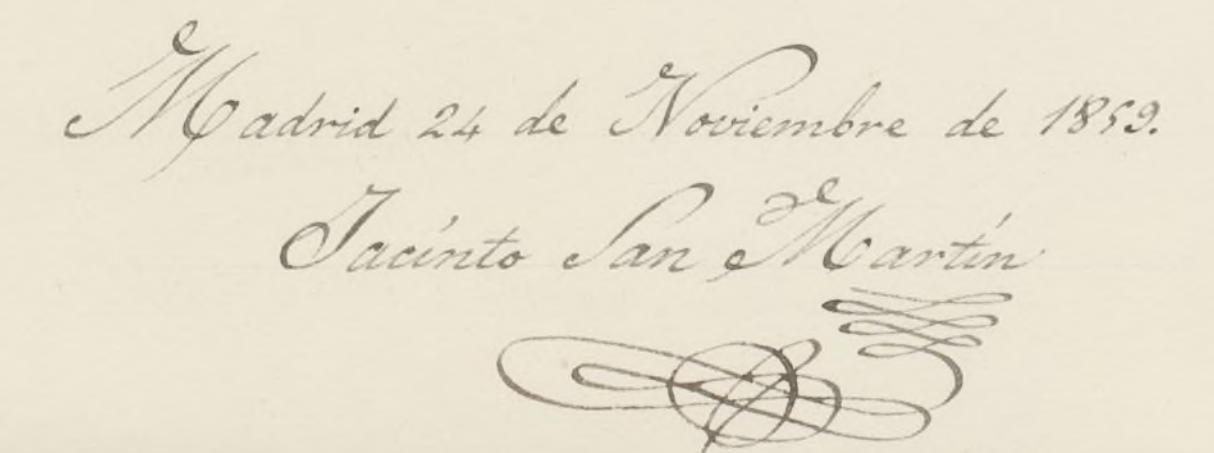 Madrid 24 de Noviembre de 1859.
Jacinto San Martín